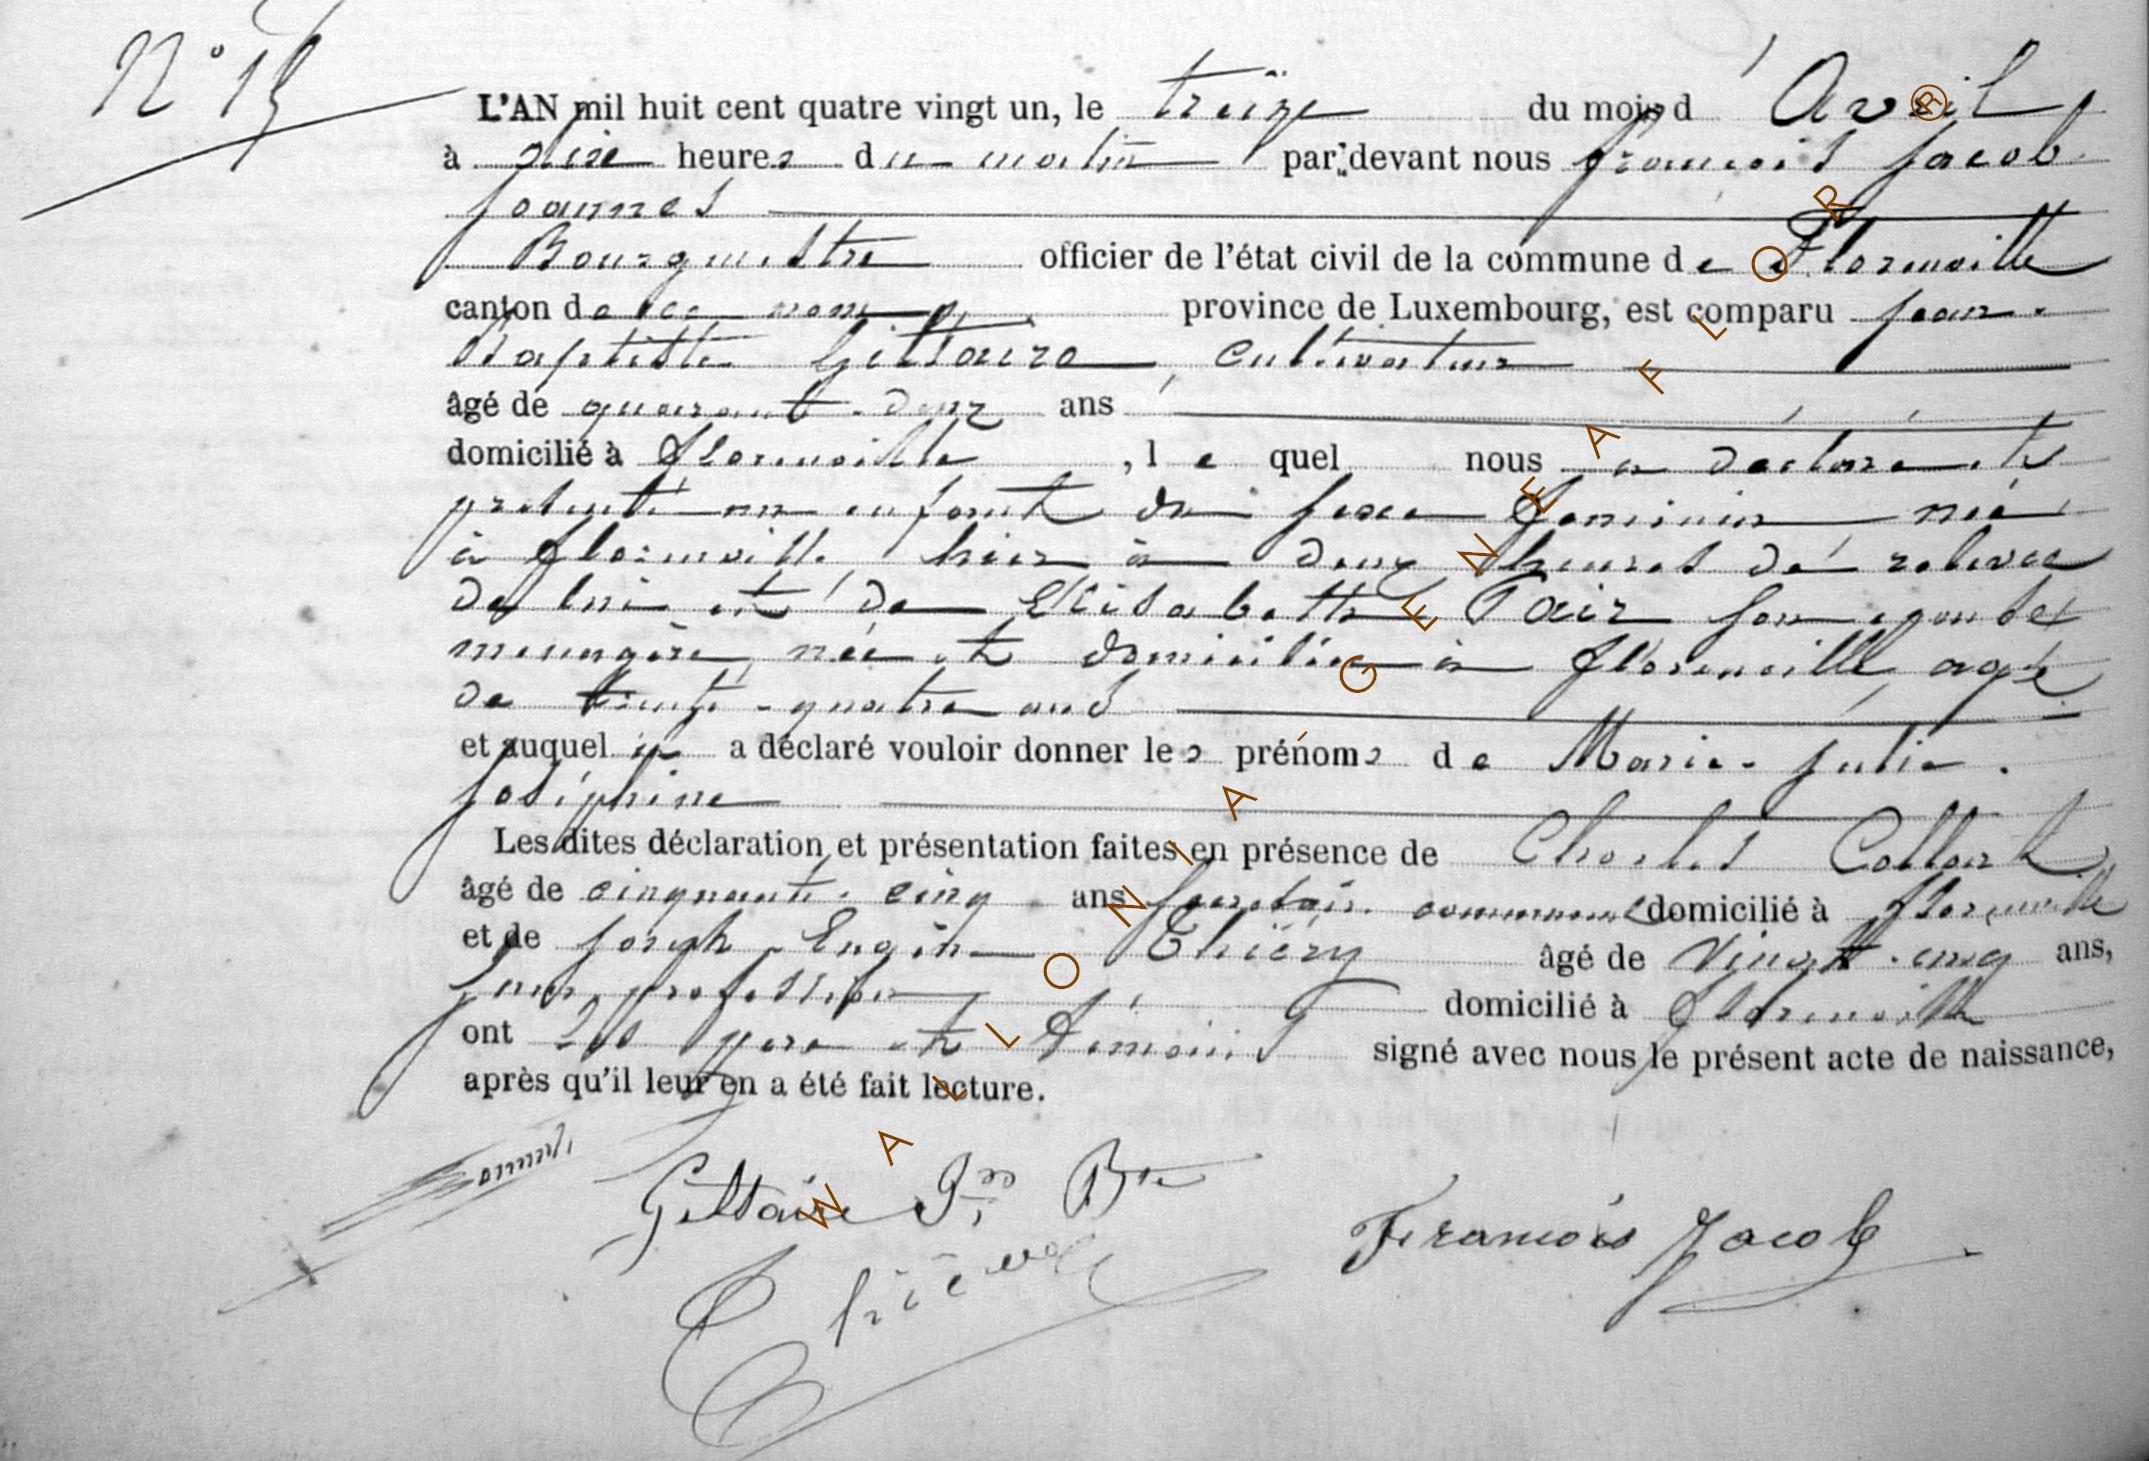 N° 15
L'AN mil huit cent quatre vingt un, le treize du mois d'Avril
à heures du matin par devant nous françois Jacob
Joannes
Bourgmestre officier de l'état civil de la commune de Florenville
canton de ce nom, province de Luxembourg, est comparu Jean-
Baptiste Giltaire, cultivateur
âgé de quarante-deux ans
domicilié à florenville, le quel nous a déclaré et
présenté un enfant du sexe féminin née
à florenville hier à deux heures de relevée
de lui et de Elisabeth Pair son épouse
menagère, née et domiciliée à florenville, agée
de trente-quatre ans
et auquel il a déclaré vouloir donner les prénoms de Marie-Julie-
Joséphine
Les dites déclaration et présentation faites en présence de Charles Collart
âgé de cinquante-cinq ans secrétaire communal domicilié à florenville
et de Joseph-Eugène Thiéry âgé de vingt-cinq ans,
sans profession domicilié à florenville
ont les père et témoins signé avec nous le présent acte de naissance,
après qu'il leur en a été fait lecture.
Giltaire Jn Bte
François Jacob
Thiéry
WALLONIA GÉNÉAFLOR ®